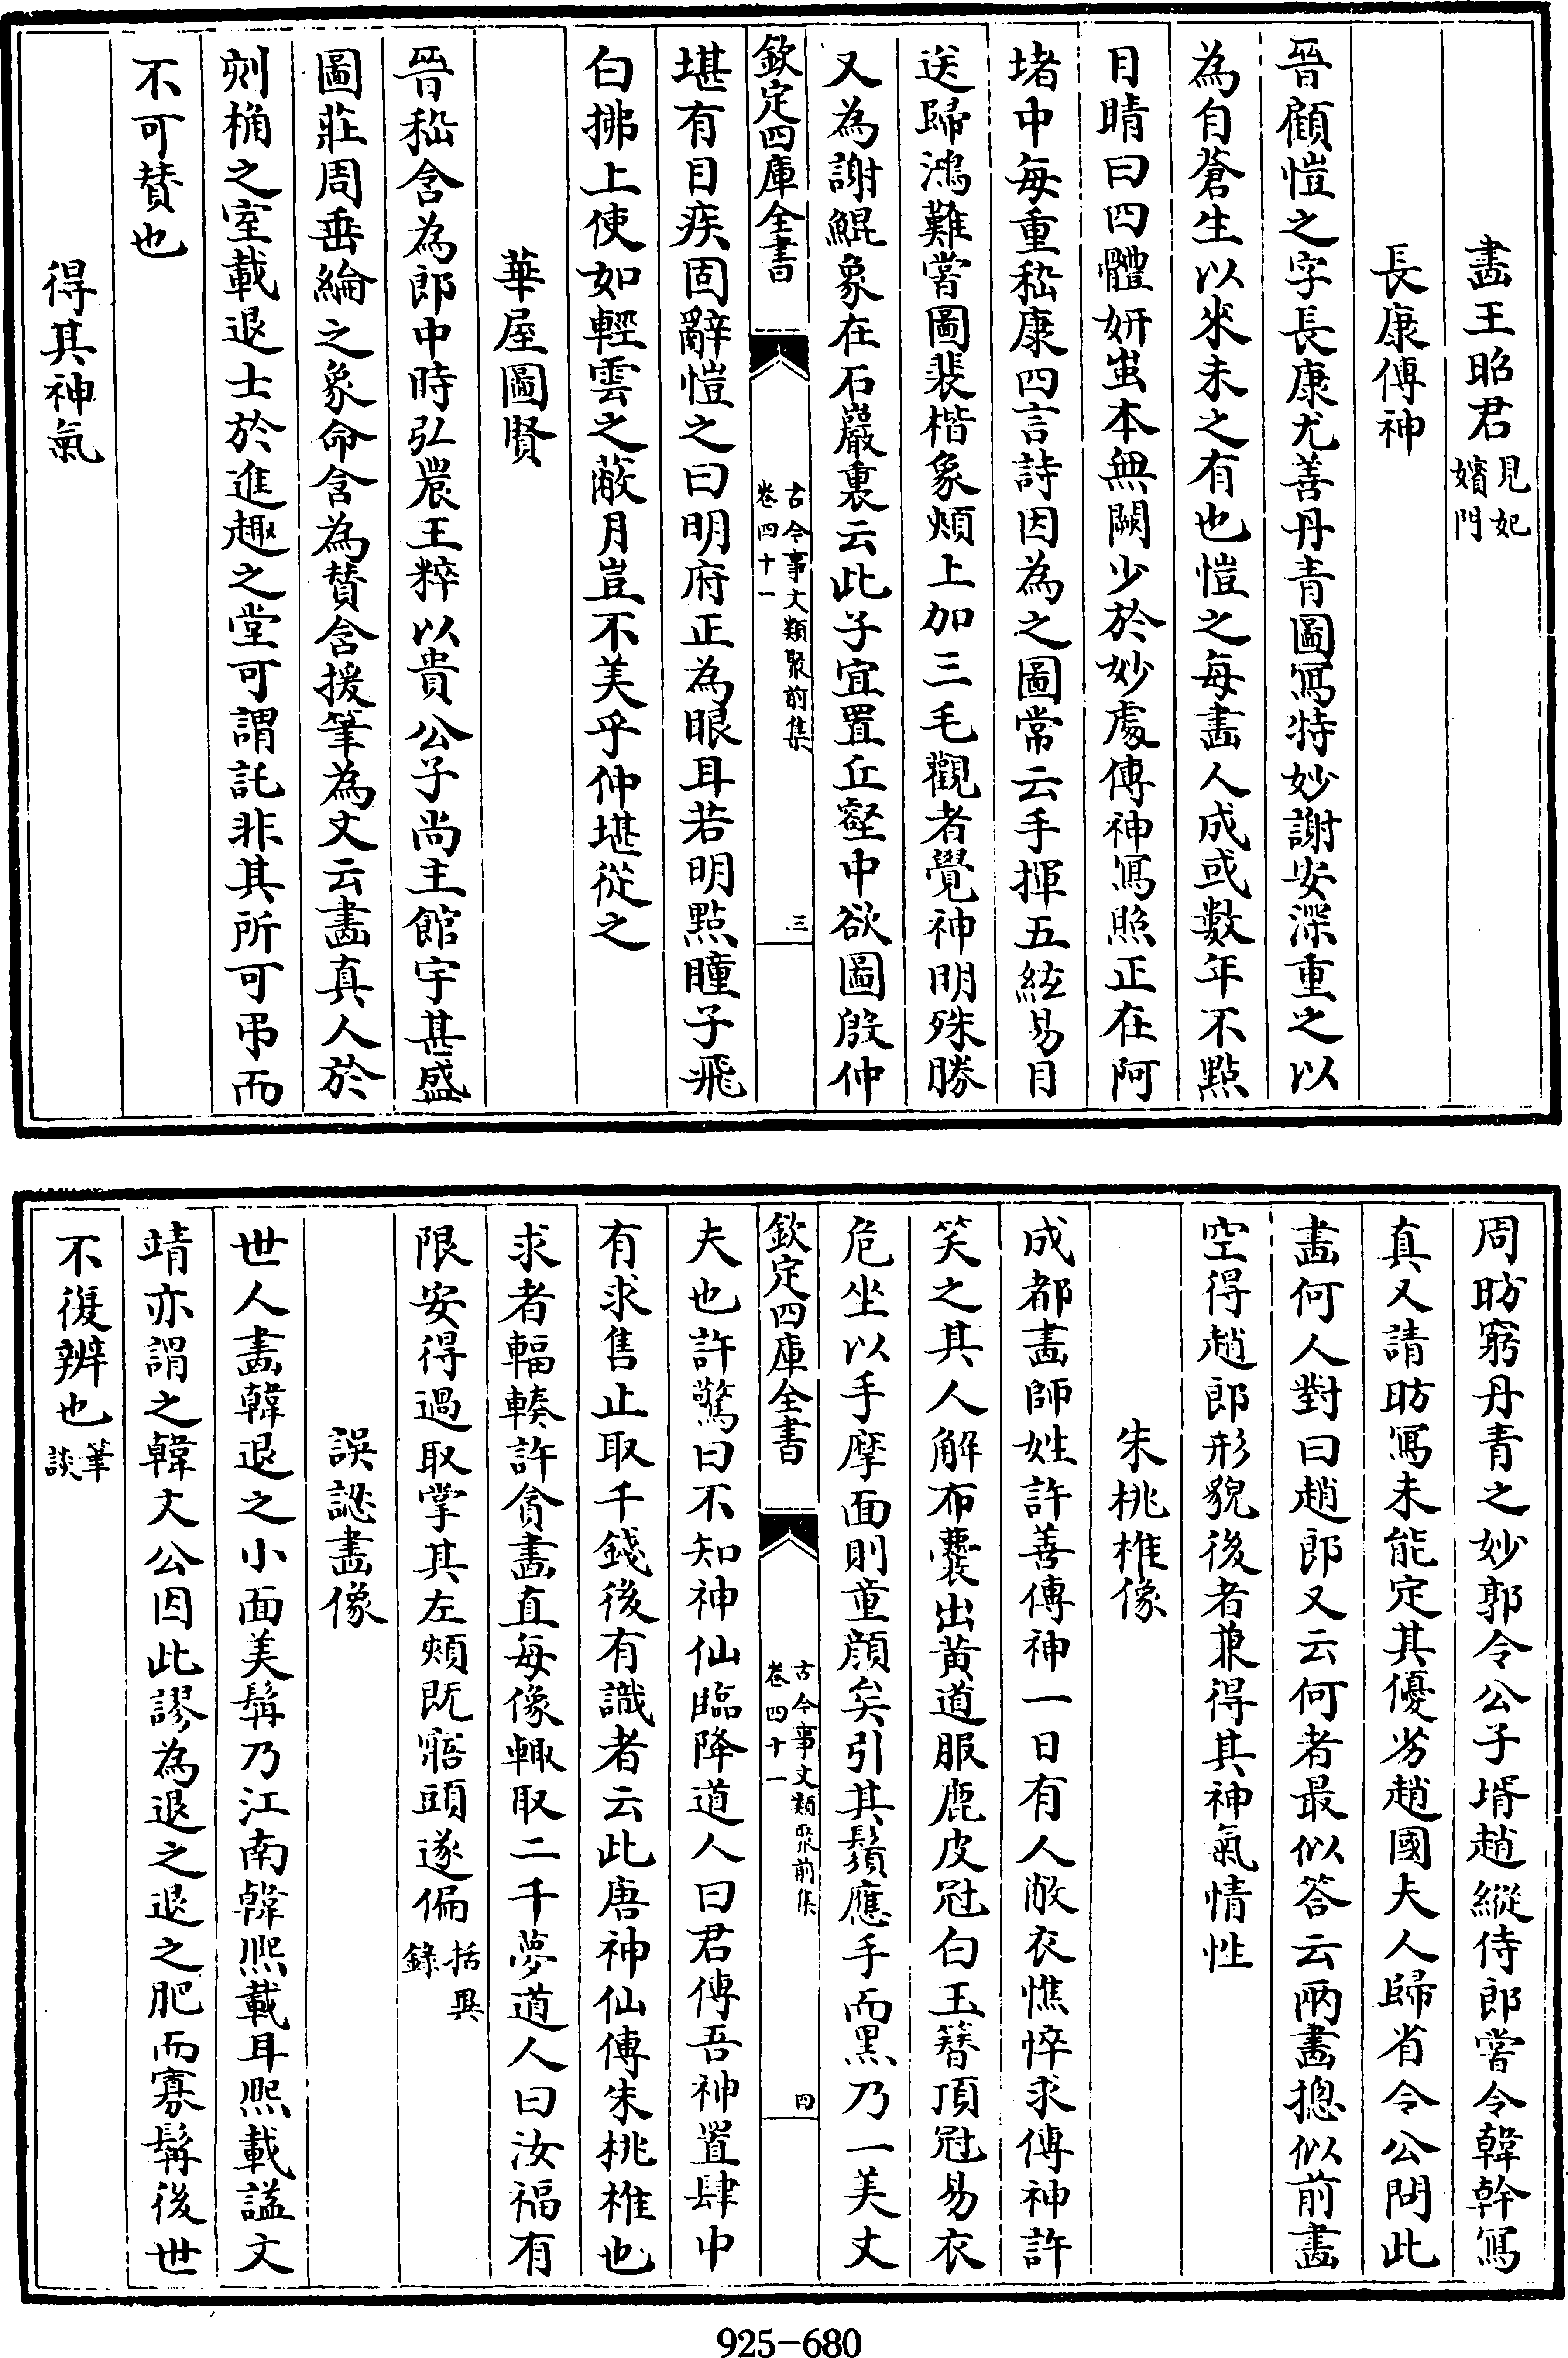 畫王昭君見妃嬪門
長康傳神
晉顧愷之字長康尤善丹青圖寫特妙謝安深重之以
為自蒼生以來未之有也愷之每畫人成或數年不點
目睛曰四體妍蚩本無闕少於妙處傳神寫照正在阿
堵中每重嵇康四言詩因為之圖常云手揮五絃易目
送歸鴻難嘗圖裴楷象頰上加三毛觀者覺神明殊勝
又為謝鯤象在石巖裏云此子宜置丘壑中欲圖殷仲
欽定四庫全書
古今事文類聚前集
卷四十一
三
堪有目疾固辭愷之曰明府正為眼耳若明點瞳子飛
白拂上使如輕雲之蔽月豈不美乎仲堪從之
華屋圖賢
晉嵇含為郎中時弘農王粹以貴公子尚主館宇甚盛
圖莊周垂綸之象命含為賛含援筆為文云畫真人於
刻桷之室載退士於進趣之堂可謂託非其所可弔而
不可賛也
得其神氣
周昉窮丹青之妙郭令公子壻趙縱侍郎嘗令韓幹寫
真又請昉寫未能定其優劣趙國夫人歸省令公問此
畫何人對曰趙郎又云何者最似答云兩畫摠似前畫
空得趙郎形貌後者兼得其神氣情性
朱桃椎像
成都畫師姓許善傳神一日有人敝衣憔悴求傳神許
笑之其人解布囊出黄道服鹿皮冠白玉簪頂冠易衣
危坐以手摩面則童顔矣引其鬚應手而黑乃一美丈
欽定四庫全書
古今事文類聚前集
卷四十一
四
夫也許驚曰不知神仙臨降道人曰君傳吾神置肆中
有求售止取千錢後有識者云此唐神仙傳朱桃椎也
求者輻輳許貪畫直每像輒取二千夢道人曰汝福有
限安得過取掌其左頰既寤頭遂偏括異錄
誤認畫像
世人畫韓退之小面美髯乃江南韓熙載耳熙載諡文
靖亦謂之韓文公因此謬為退之退之肥而寡髯後世
不復辨也筆談
925-680